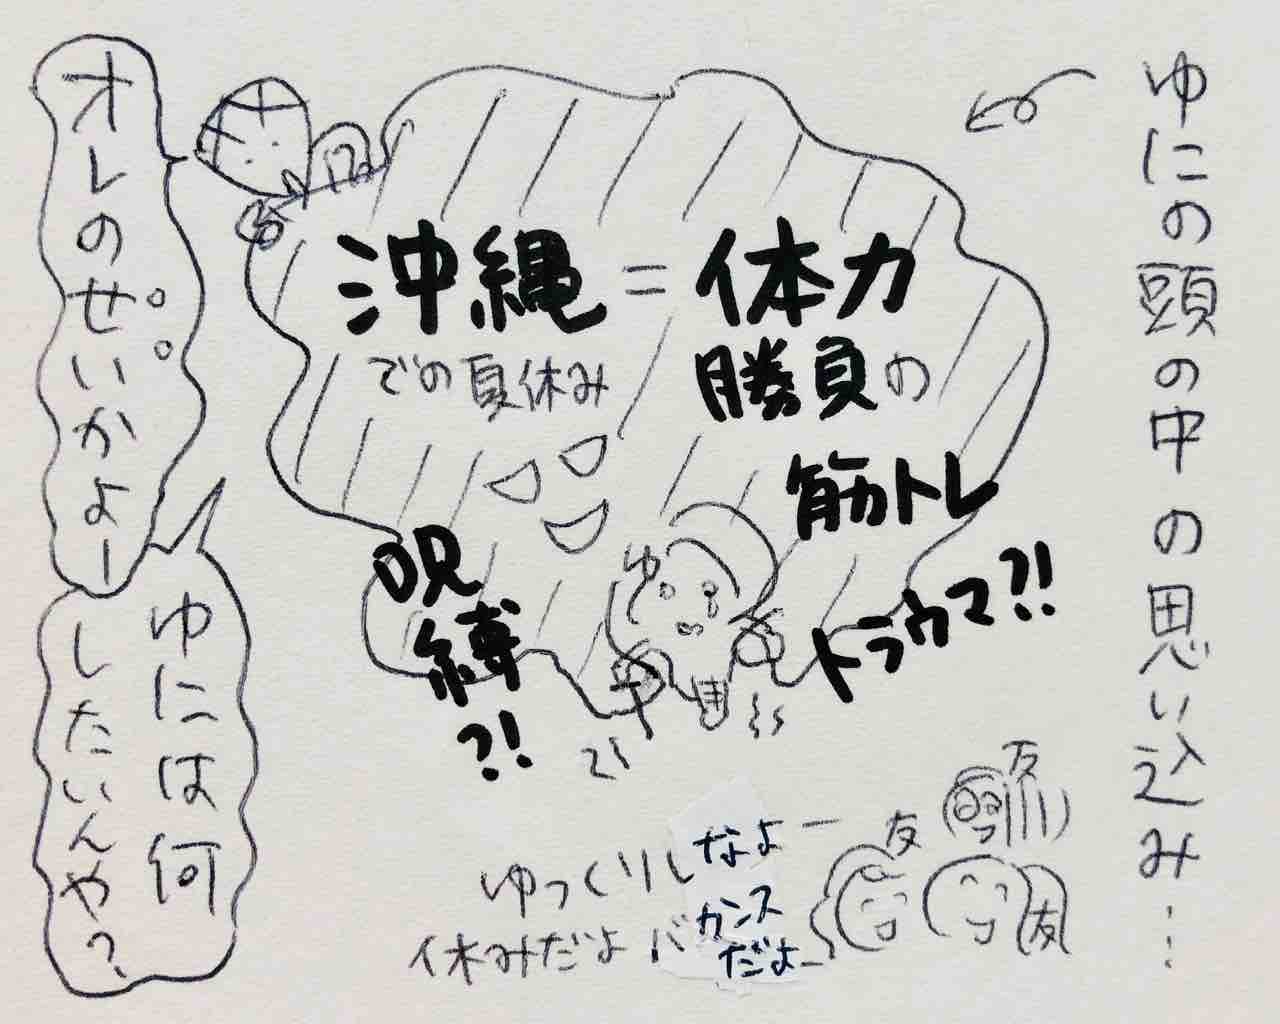 ゆにの頭の中の思い込み…
沖縄=体力
での夏休み
勝負の
筋トレ
呪
縛
?!
トラウマ?!
ゆ
オレのせいかよー
ゆには何
したいんや?
友
友
友
ゆっくりしなよー
休みだよバカンス
だよー